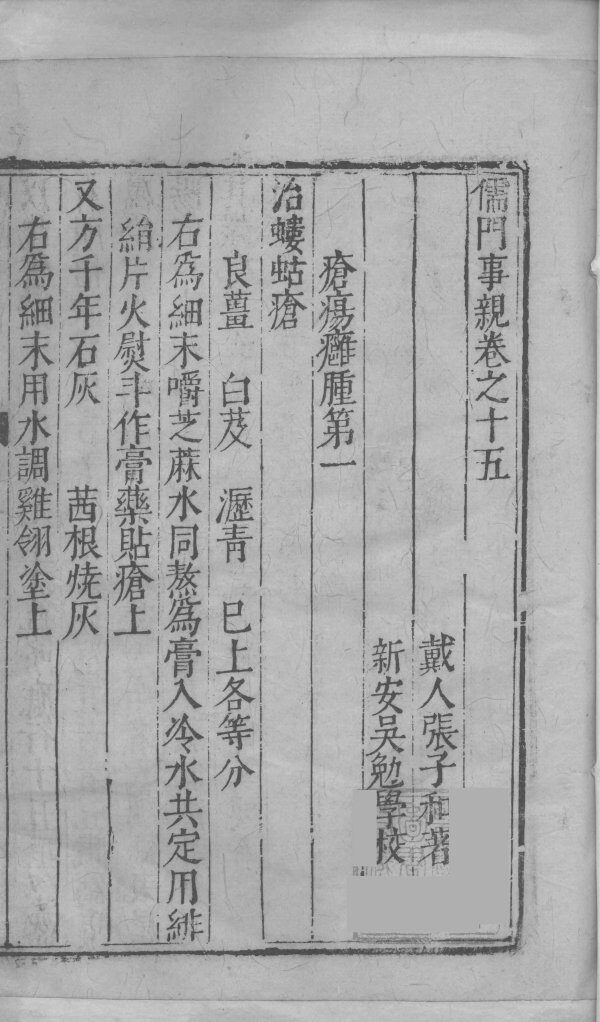 儒門事親卷之十五
戴人張子和著
新安吳勉學校
瘡瘍癰腫第一
治螻蛄瘡
良薑 白芨 瀝青 巳上各等分
右爲細末嚼芝蔴水同熬爲膏入冷水共定用緋
絹片火熨斗作膏藥貼瘡上
又方千年石灰 茜根燒灰
右爲細末用水調雞翎塗上